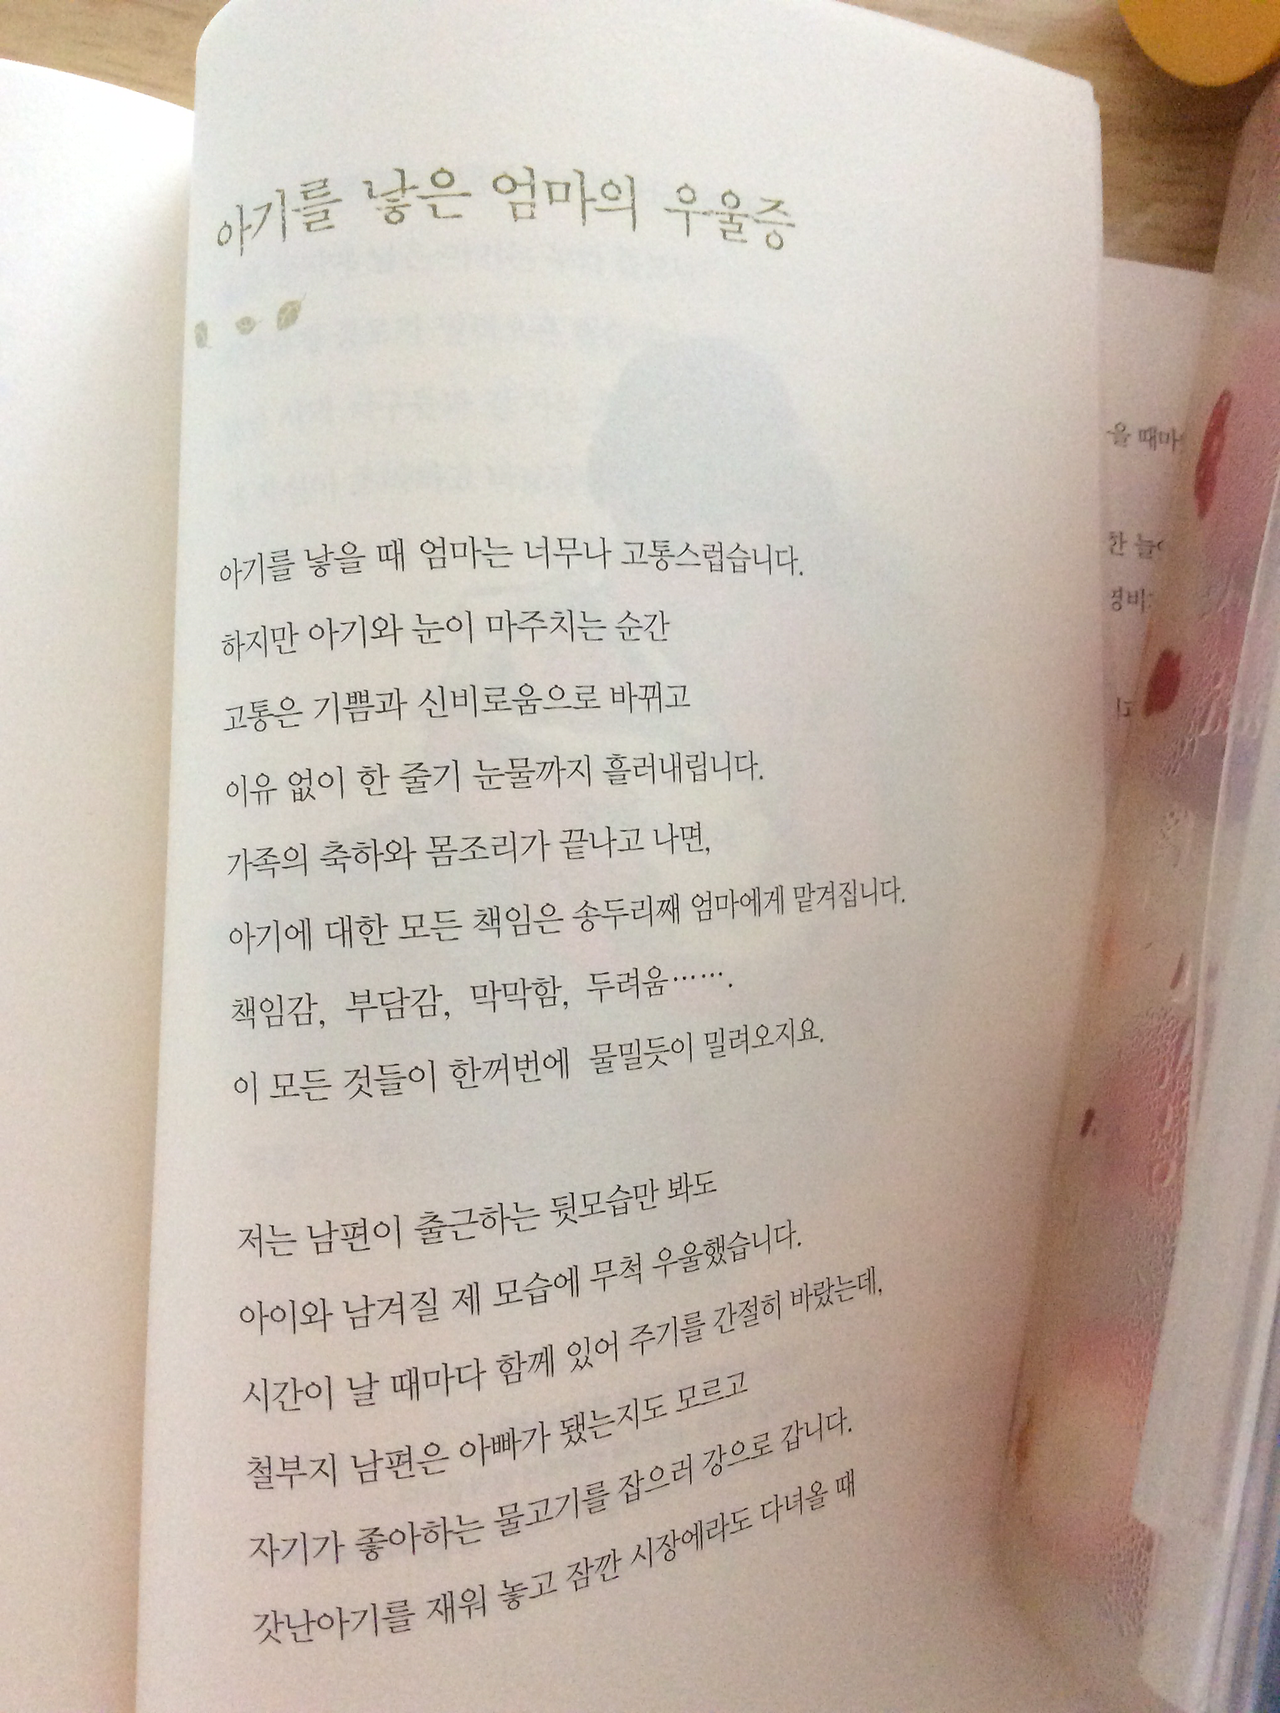 아기를 낳은 엄마의 우울증
아기를 낳을 때 엄마는 너무나 고통스럽습니다.
하지만 아기와 눈이 마주치는 순간
고통은 기쁨과 신비로움으로 바뀌고
이유 없이 한 줄기 눈물까지 흘러내립니다.
가족의 축하와 몸조리가 끝나고 나면,
아기에 대한 모든 책임은 송두리째 엄마에게 맡겨집니다.
책임감, 부담감, 막막함, 두려움…….
이 모든 것들이 한꺼번에 물밀듯이 밀려오지요.
저는 남편이 출근하는 뒷모습만 봐도
아이와 남겨질 제 모습에 무척 우울했습니다.
시간이 날 때마다 함께 있어 주기를 간절히 바랐는데,
철부지 남편은 아빠가 됐는지도 모르고
자기가 좋아하는 물고기를 잡으러 강으로 갑니다.
갓난아기를 재워 놓고 잠깐 시장에라도 다녀올 때
을 때마
한